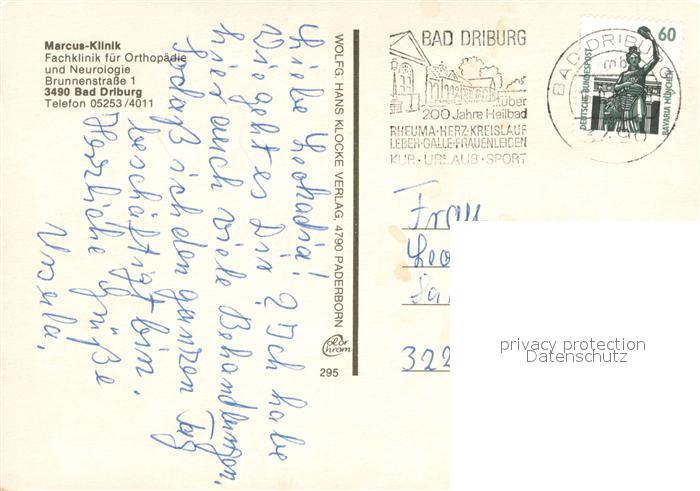 Marcus-Klinik
Fachklinik für Orthopädie
und Neurologie
Brunnenstraße 1
3490 Bad Driburg
Telefon 05253/4011
Liebe Leokadia!
Wie geht es Dir? Ich habe
hier auch viele Behandlungen,
sodaß ich den ganzen Tag
beschäftigt bin.
Herzliche Grüße
Ursula.
WOLFG. HANS KLOCKE VERLAG, 4790 PADERBORN
Color
chrom
295
BAD DRIBURG
über
200 Jahre Heilbad
RHEUMA·HERZ·KREISLAUF
LEBER·GALLE·FRAUENLEIDEN
KUR·URLAUB·SPORT
BAD DRIBURG
mb
3490
60
DEUTSCHE BUNDESPOST
BAVARIA MÜNCHEN
Frau
Leo
322
privacy protection
Datenschutz